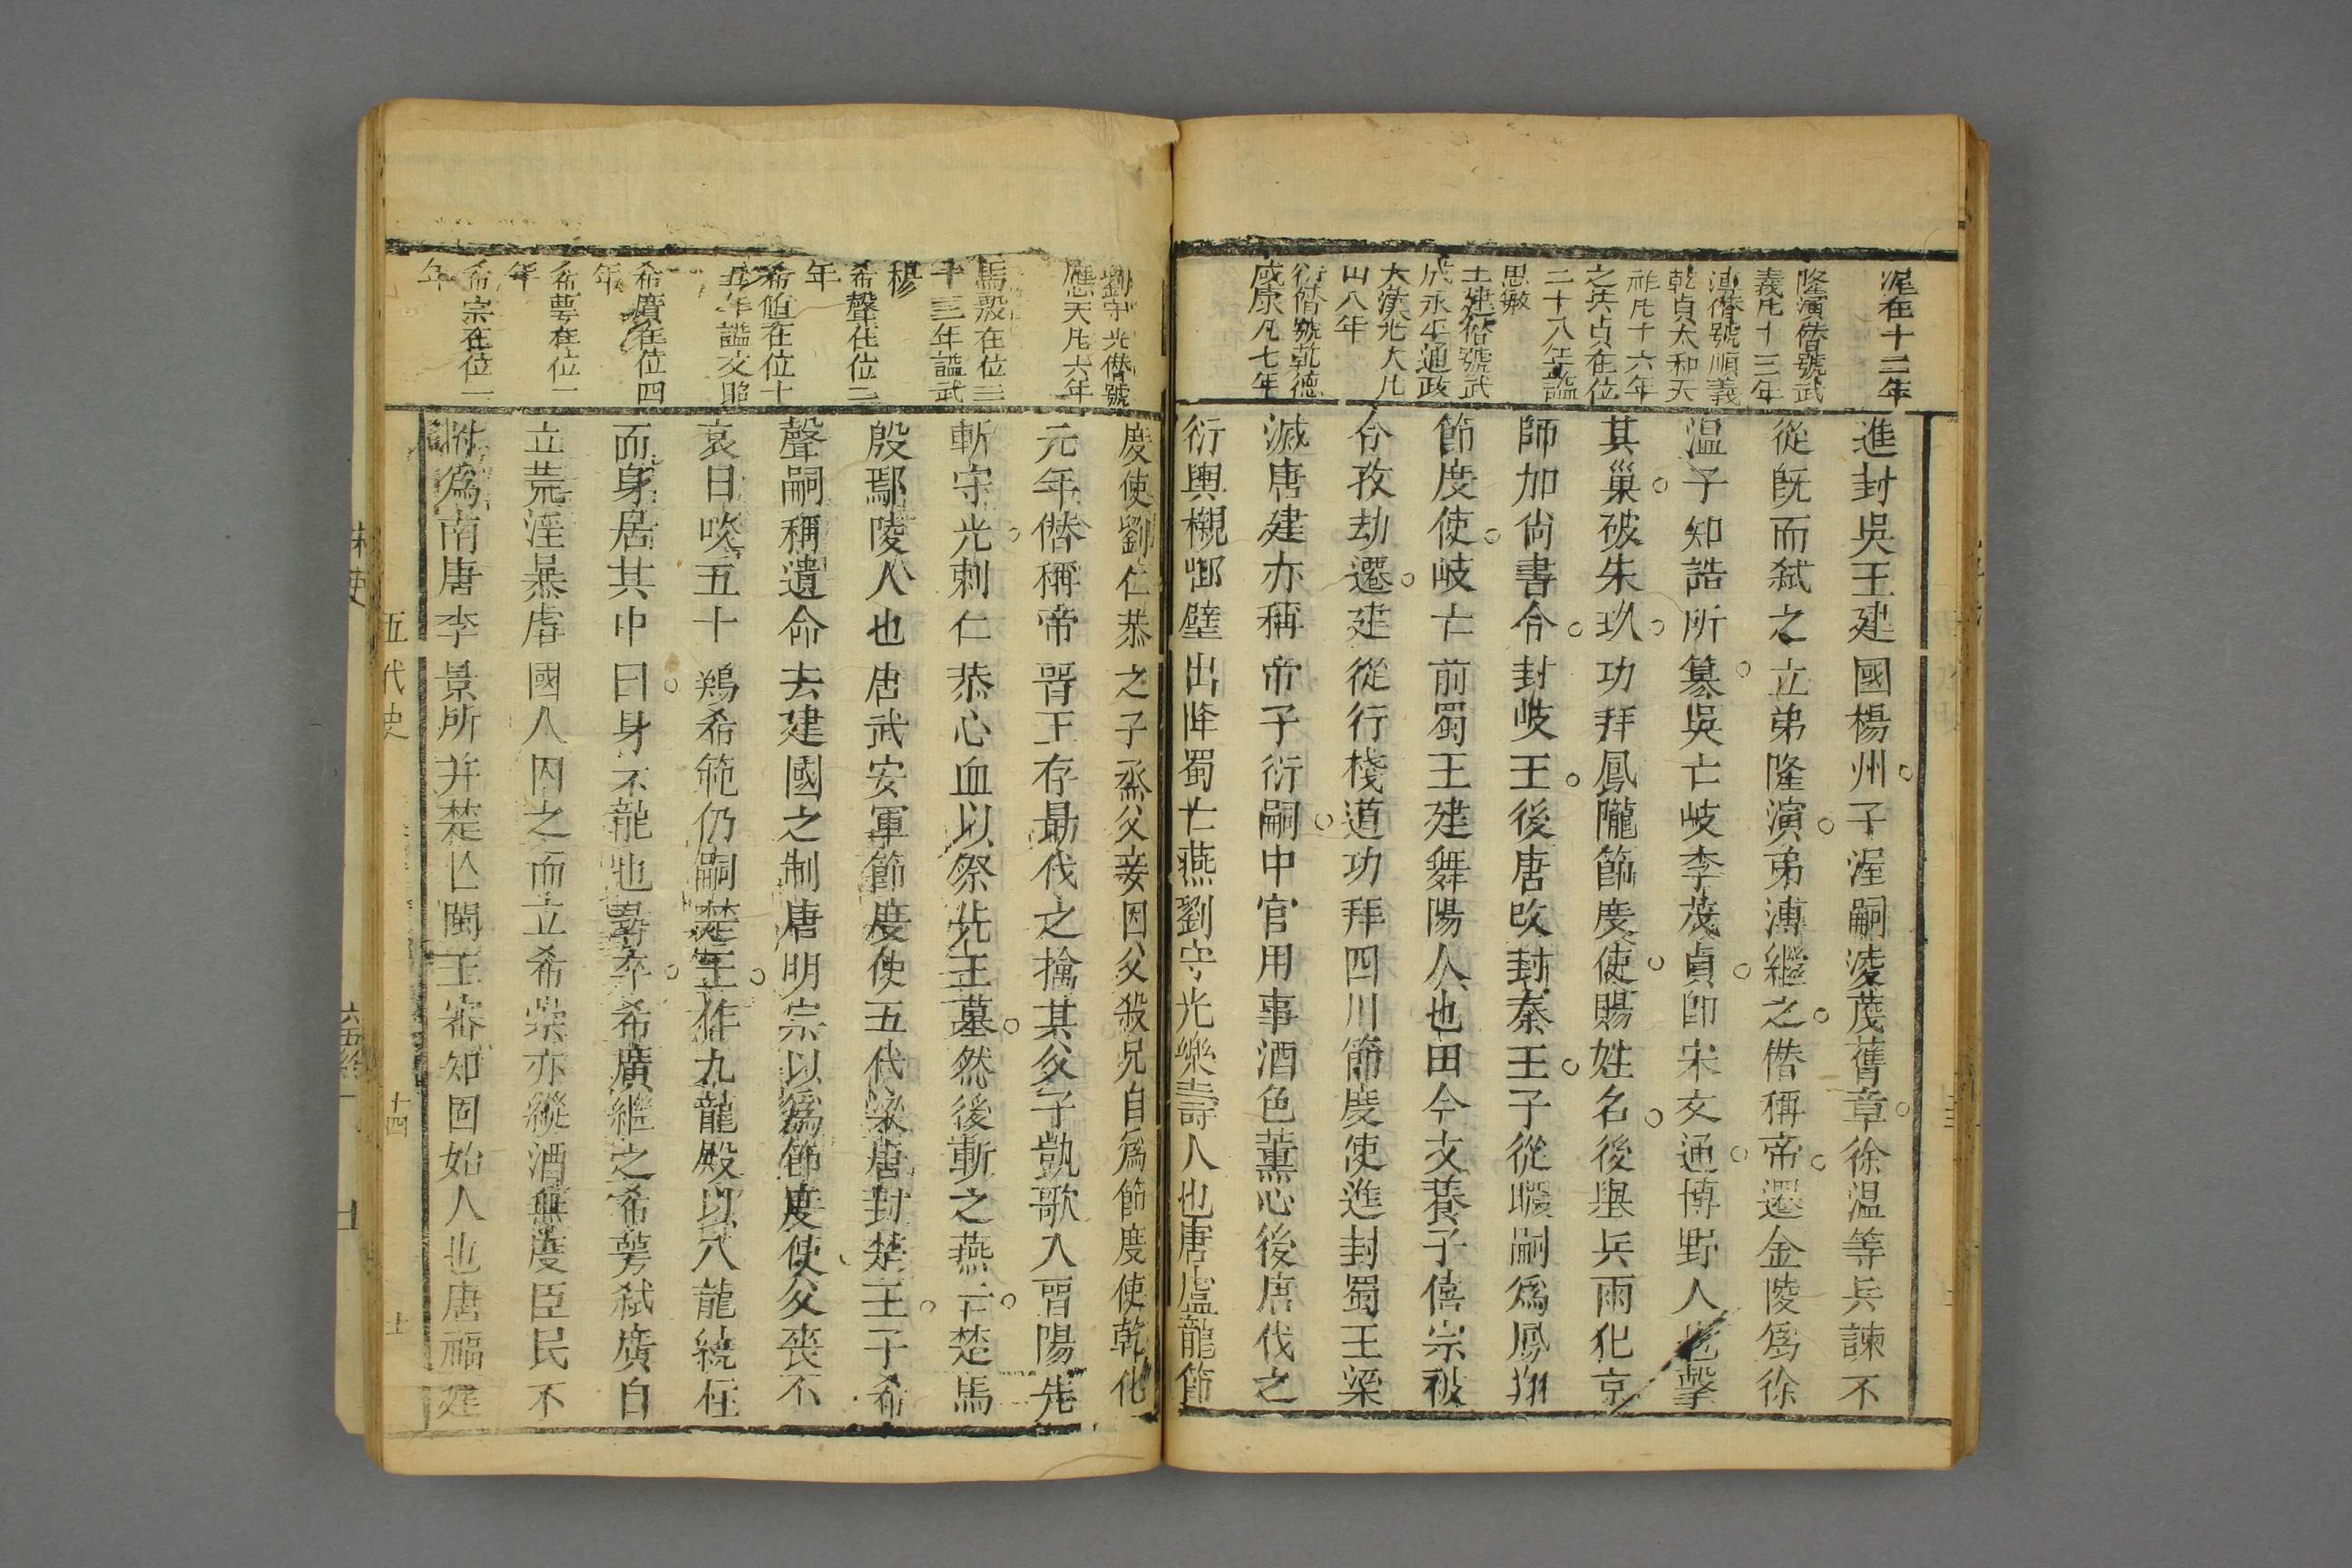 渥在十二年
隆演僭號武
義凡十三年
溥僭號順義
乾貞太和天
祚凡十六年
之共貞在位
二十八年謚
思敏
王建僭號武
成永平通政
天漢光大凡
廿八年
衍僭號乾德
咸康凡七年
進封吳王建國楊州○子渥嗣凌蔑舊章○徐温等兵諫不
從既而弑之立弟隆演○弟溥繼之○僭稱帝○遷金陵爲徐
温子知誥所篡○吳亡岐李茂貞○卽宋文通○博野人也擊
其巢○破朱玖○功拜鳳隴節度使○賜姓名○後舉兵雨犯京
師加尙書令○封岐王○後唐改封秦王○子從曮嗣爲鳳翔
節度使○岐亡前蜀王建舞陽人也田令文養子僖宗被
令孜劫遷○建從行棧道功拜四川節度使進封蜀王梁
滅唐建亦稱帝子衍嗣○中官用事酒色薰心後唐伐之
衍輿櫬啣壁出降蜀亡燕劉守光樂壽人也唐盧龍節
劉守光僭號
應天凡六年
馬殷在位三
十三年謚武
穆
希聲在位二
年
希範在位十
五年謚文昭
希廣在位四
年
希萼在位一
年
希宗在位一
年
度使劉仁恭之子烝父妾因父殺兄自爲節度使乾化
元年僭稱帝晉王存勗伐之擒其父子凱歌入晉陽先
斬守光○刺仁恭心血以祭先王墓○然後斬之燕亡○楚馬
殷鄢陵人也唐武安軍節度使五代梁唐封楚王○子希
聲嗣稱遺命去建國之制唐明宗以爲節度使父喪不
哀日啖五十鷄希範仍嗣楚王○作九龍殿以八龍繞柱
而身居其中曰○身亦龍也尋卒○希廣繼之希萼弑廣自
立荒淫暴虐國人囚之而立希崇亦縱酒無度臣民不
附爲南唐李景所并楚亡閩王審知固始人也唐福建
五代史
十四